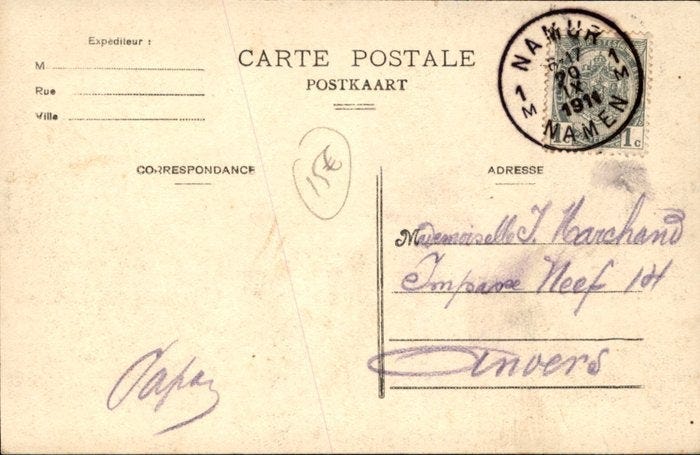 Expéditeur :
M
Rue
Ville
CARTE POSTALE
POSTKAART
NAMUR 1
1 NAMEN
M
M
17
20
IX
1911
1c
1c
CORRESPONDANCE
15€
ADRESSE
Mademoiselle J. Marchand
Impasse Neef 14
Anvers
Papa